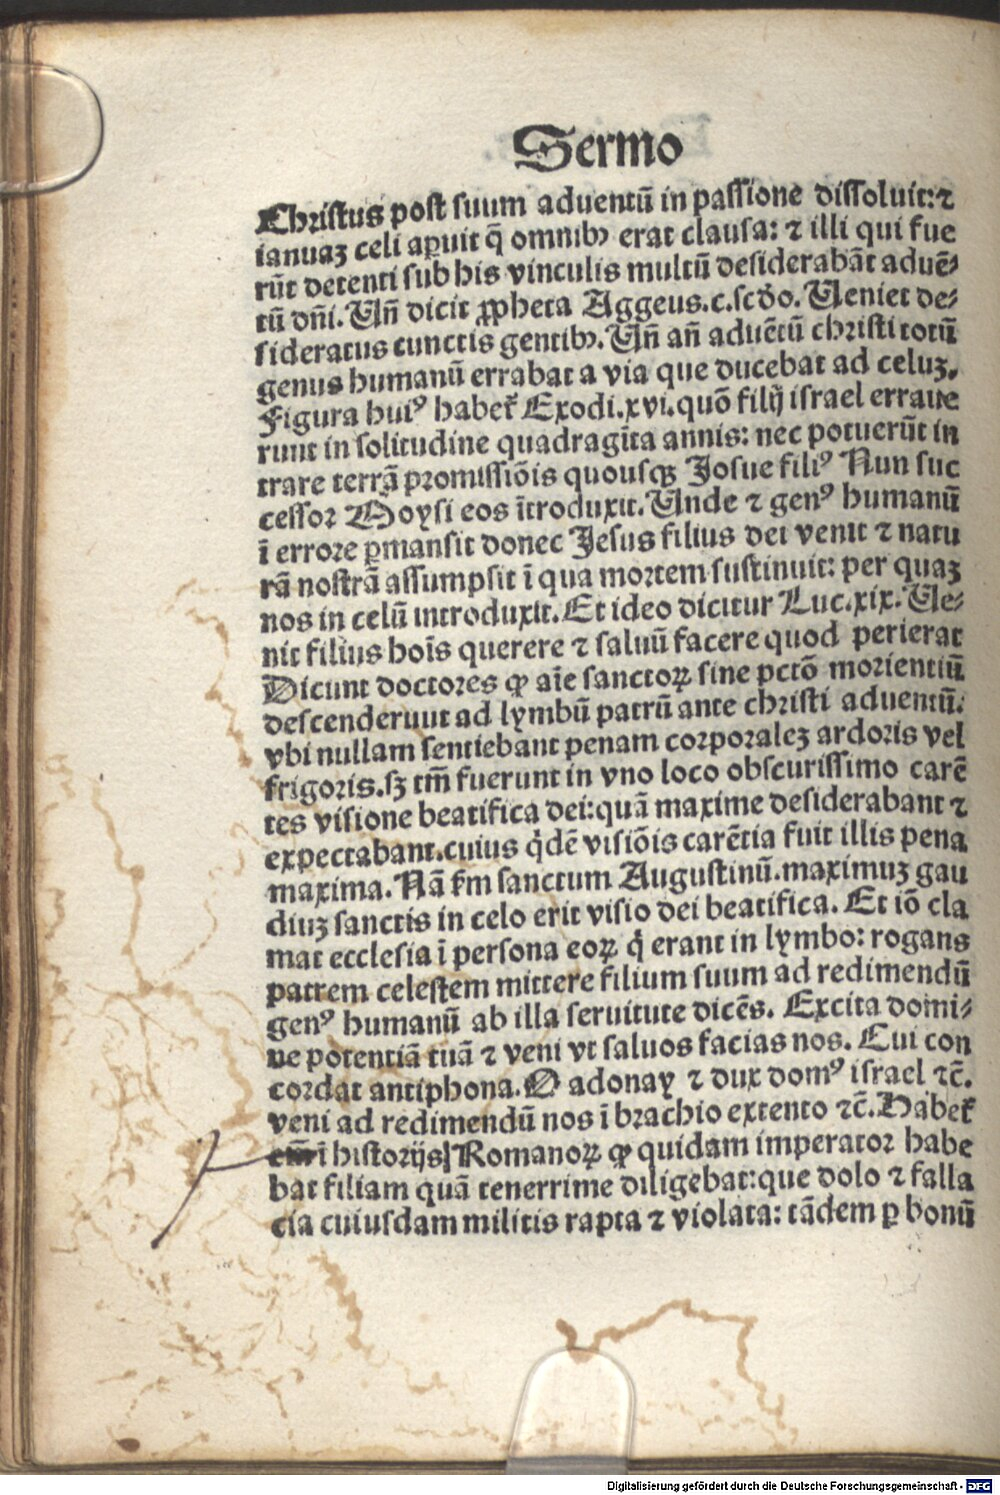 Sermo
Christus post suum aduentū in passione dissoluit: ⁊
ianuaȝ celi aꝑuit q̄ omnibꝰ erat clausa: ⁊ illi qui fue
rūt detenti sub his vinculis multū desiderabāt aduē⸗
tū dñi. Vñ dicit ꝓpheta Aggeus. c. scďo. Veniet de⸗
sideratus cunctis gentibꝰ. Vñ añ aduētū christi totū
genus humanū errabat a via que ducebat ad celuȝ.
Figura huiꝰ habet̄ Exodi. xvi. quō filij israel erraue
runt in solitudine quadragīta annis: nec potuerūt in
trare terrā promissiōis quousqꝫ Josue filiꝰ Nun suc
cessor Moysi eos ītroduxit. Unde ⁊ genꝰ humanū
ī errore ꝑmansit donec Jesus filius dei venit ⁊ natu
rā nostrā assumpsit ī qua mortem sustinuit: per quaȝ
nos in celū introduxit. Et ideo dicitur Luc. xix. Ve⸗
nit filius hoīs querere ⁊ saluū facere quod perierat
Dicunt doctores ꝙ aīe sanctoꝝ sine pctō morientiū
descenderuut ad lymbū patrū ante christi aduentū.
vbi nullam sentiebant penam corporaleȝ ardoris vel
frigoris. sȝ tm̄ fuerunt in vno loco obscurissimo carē
tes visione beatifica dei: quā maxime desiderabant ⁊
expectabant. cuius q̇dē visiōis carētia fuit illis pena
maxima. Nā ẜm sanctum Augustinū. maximuȝ gau
diuȝ sanctis in celo erit visio dei beatifica. Et iō cla
mat ecclesia ī persona eoꝝ q̇ erant in lymbo: rogans
patrem celestem mittere filium suum ad redimendū
genꝰ humanū ab illa seruitute dicēs. Excita domi⸗
ne potentiā tuā ⁊ veni vt saluos facias nos. Cui con
cordat antiphona. O adonay ⁊ dux domꝰ israel ⁊c̄.
veni ad redimendū nos ī brachio extento ⁊c̄. Habet̄
em̄ ī historijs Romanoꝝ ꝙ quidam imperator habe
bat filiam quā tenerrime diligebat: que dolo ⁊ falla
cia cuiusdam militis rapta ⁊ violata: tādem ꝑ bonū
Digitalisierung gefördert durch die Deutsche Forschungsgemeinschaft - DFG